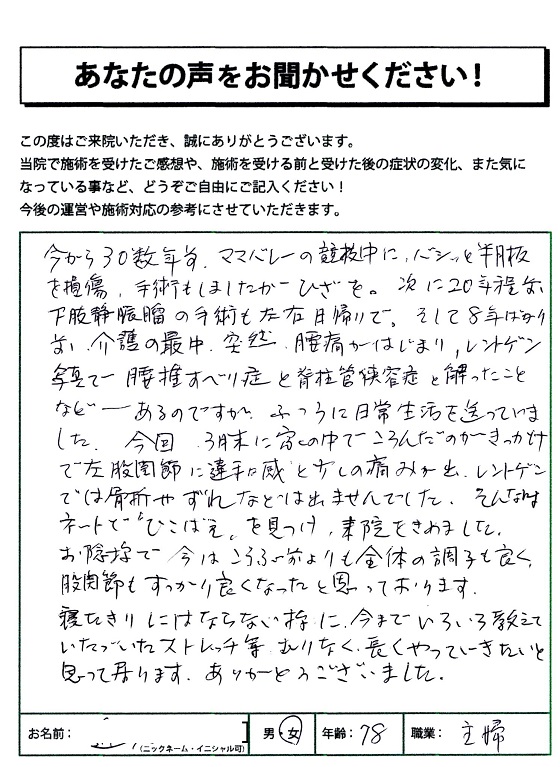 あなたの声をお聞かせください！
この度はご来院いただき、誠にありがとうございます。
当院で施術を受けたご感想や、施術を受ける前と受けた後の症状の変化、また気に
なっている事など、どうぞご自由にご記入ください！
今後の運営や施術対応の参考にさせていただきます。
今から30数年前、ママバレーの競技中に、バシッと半月板
を損傷、手術もしましたがひざを。次に20年程前
下肢静脈瘤の手術も左右日帰りで。そして8年ばかり
前、介護の最中、突然、腰痛がはじまり、レントゲン
写真で腰椎すべり症と脊柱管狭窄症と解ったこと
など ー あるのですが、ふつうに日常生活を送っていま
した。今回、3月末に家の中でころんだのがきっかけ
で左股関節に違和感と少しの痛みが出、レントゲン
では骨折やずれなどは出ませんでした。そんな時
ネットで「ひこばえ」を見つけ、来院をきめました。
お陰様で今はころぶ前よりも全体の調子も良く、
股関節もすっかり良くなったと思っております。
寝たきりにはならない様に、今までいろいろ教えて
いただいたストレッチ等、むりなく、長くやっていきたいと
思って居ります。ありがとうございました。
お名前：
(ニックネーム・イニシャル可)
男・女
年齢：78
職業：主婦